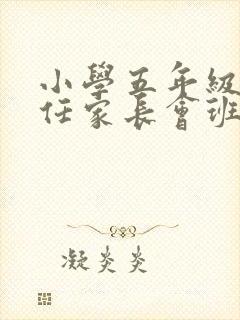 小學五年級
任家長會班
凝炎炎